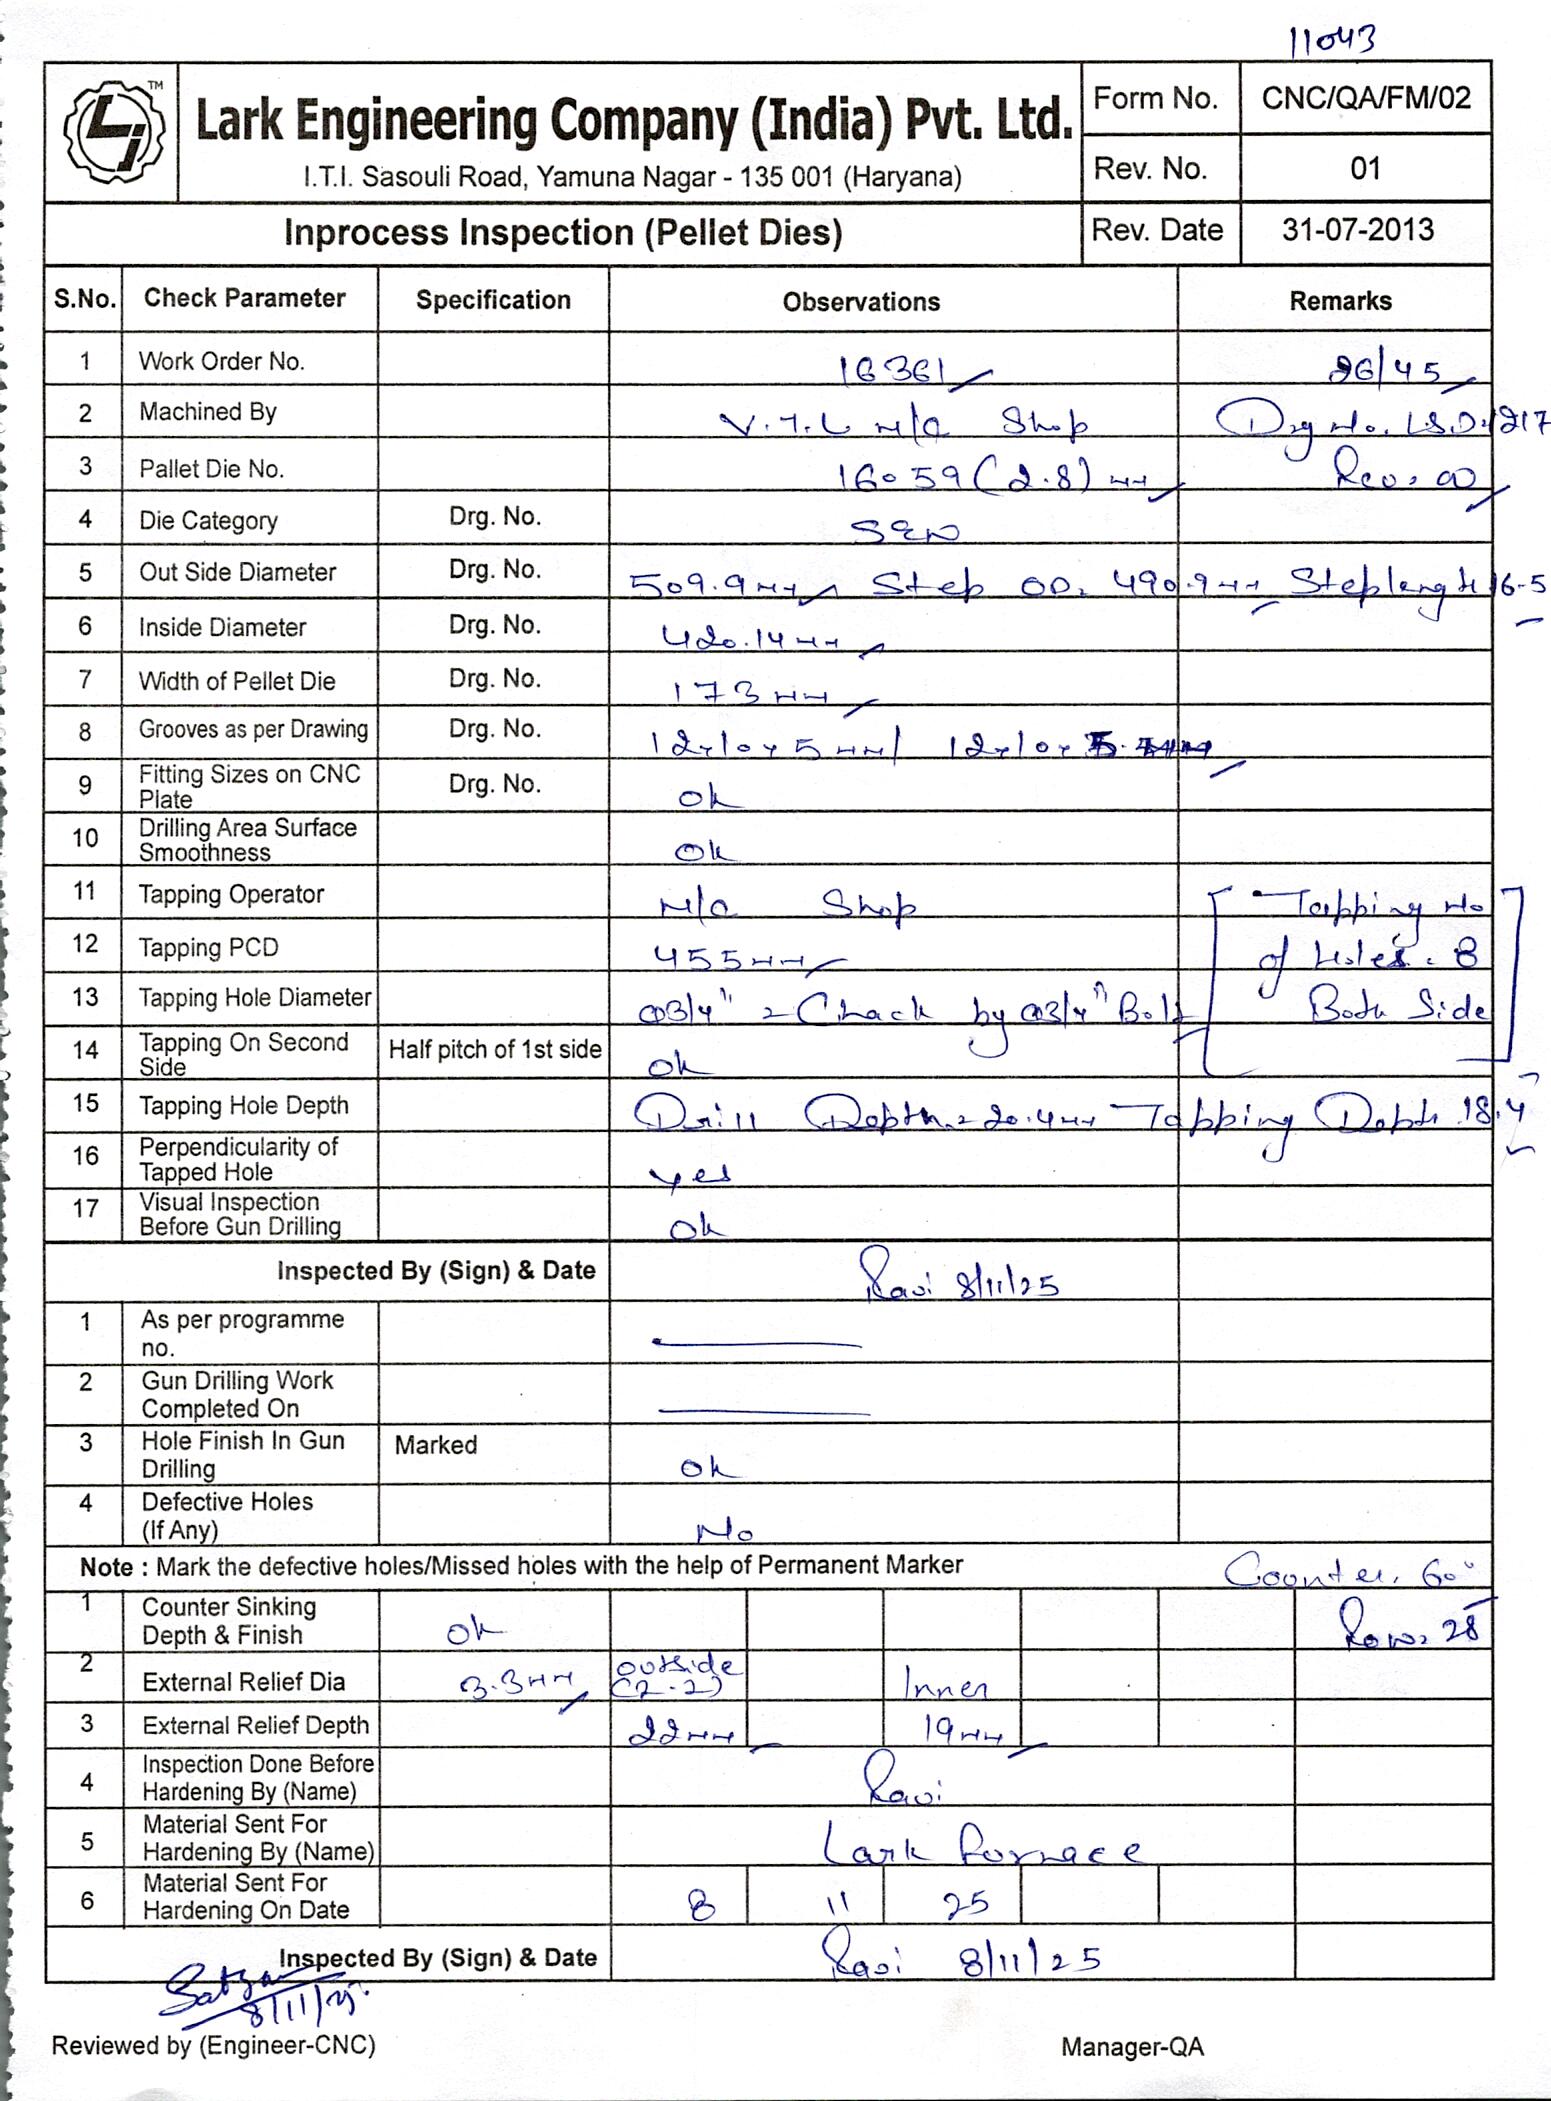 11043
TM
Lark Engineering Company (India) Pvt. Ltd.
I.T.I. Sasouli Road, Yamuna Nagar - 135 001 (Haryana)
Form No. CNC/QA/FM/02
Rev. No. 01
Inprocess Inspection (Pellet Dies) Rev. Date 31-07-2013
S.No. Check Parameter Specification Observations Remarks
1 Work Order No. 16361 26/45
2 Machined By V.T.L M/C Shop Drg No. LSD-1217
3 Pallet Die No. 16059 (2.8) mm Rev. 00
4 Die Category Drg. No. SEN
5 Out Side Diameter Drg. No. 509.9mm Step OD. 490.9mm Step length 16.5
6 Inside Diameter Drg. No. 420.14mm
7 Width of Pellet Die Drg. No. 173mm
8 Grooves as per Drawing Drg. No. 12x10x5mm/ 12x10x
9 Fitting Sizes on CNC Plate Drg. No. ok
10 Drilling Area Surface Smoothness ok
11 Tapping Operator M/C Shop Tapping No
12 Tapping PCD 455mm of Holes. 8
13 Tapping Hole Diameter Ø3/4" = Chack by Ø3/4" Bolt Both Side
14 Tapping On Second Side Half pitch of 1st side ok
15 Tapping Hole Depth Drill Depth = 20.4mm Tapping Depth 18.4
16 Perpendicularity of Tapped Hole yes
17 Visual Inspection Before Gun Drilling ok
Inspected By (Sign) & Date Ravi 8/11/25
1 As per programme no.
2 Gun Drilling Work Completed On
3 Hole Finish In Gun Drilling Marked ok
4 Defective Holes (If Any) No
Note : Mark the defective holes/Missed holes with the help of Permanent Marker Counter. 60°
1 Counter Sinking Depth & Finish ok Row. 28
2 External Relief Dia 3.3mm outside (2.2) Inner
3 External Relief Depth 22mm 19mm
4 Inspection Done Before Hardening By (Name) Ravi
5 Material Sent For Hardening By (Name) Lark furnace
6 Material Sent For Hardening On Date 8 11 25
Inspected By (Sign) & Date Ravi 8/11/25
8/11/25.
Reviewed by (Engineer-CNC) Manager-QA